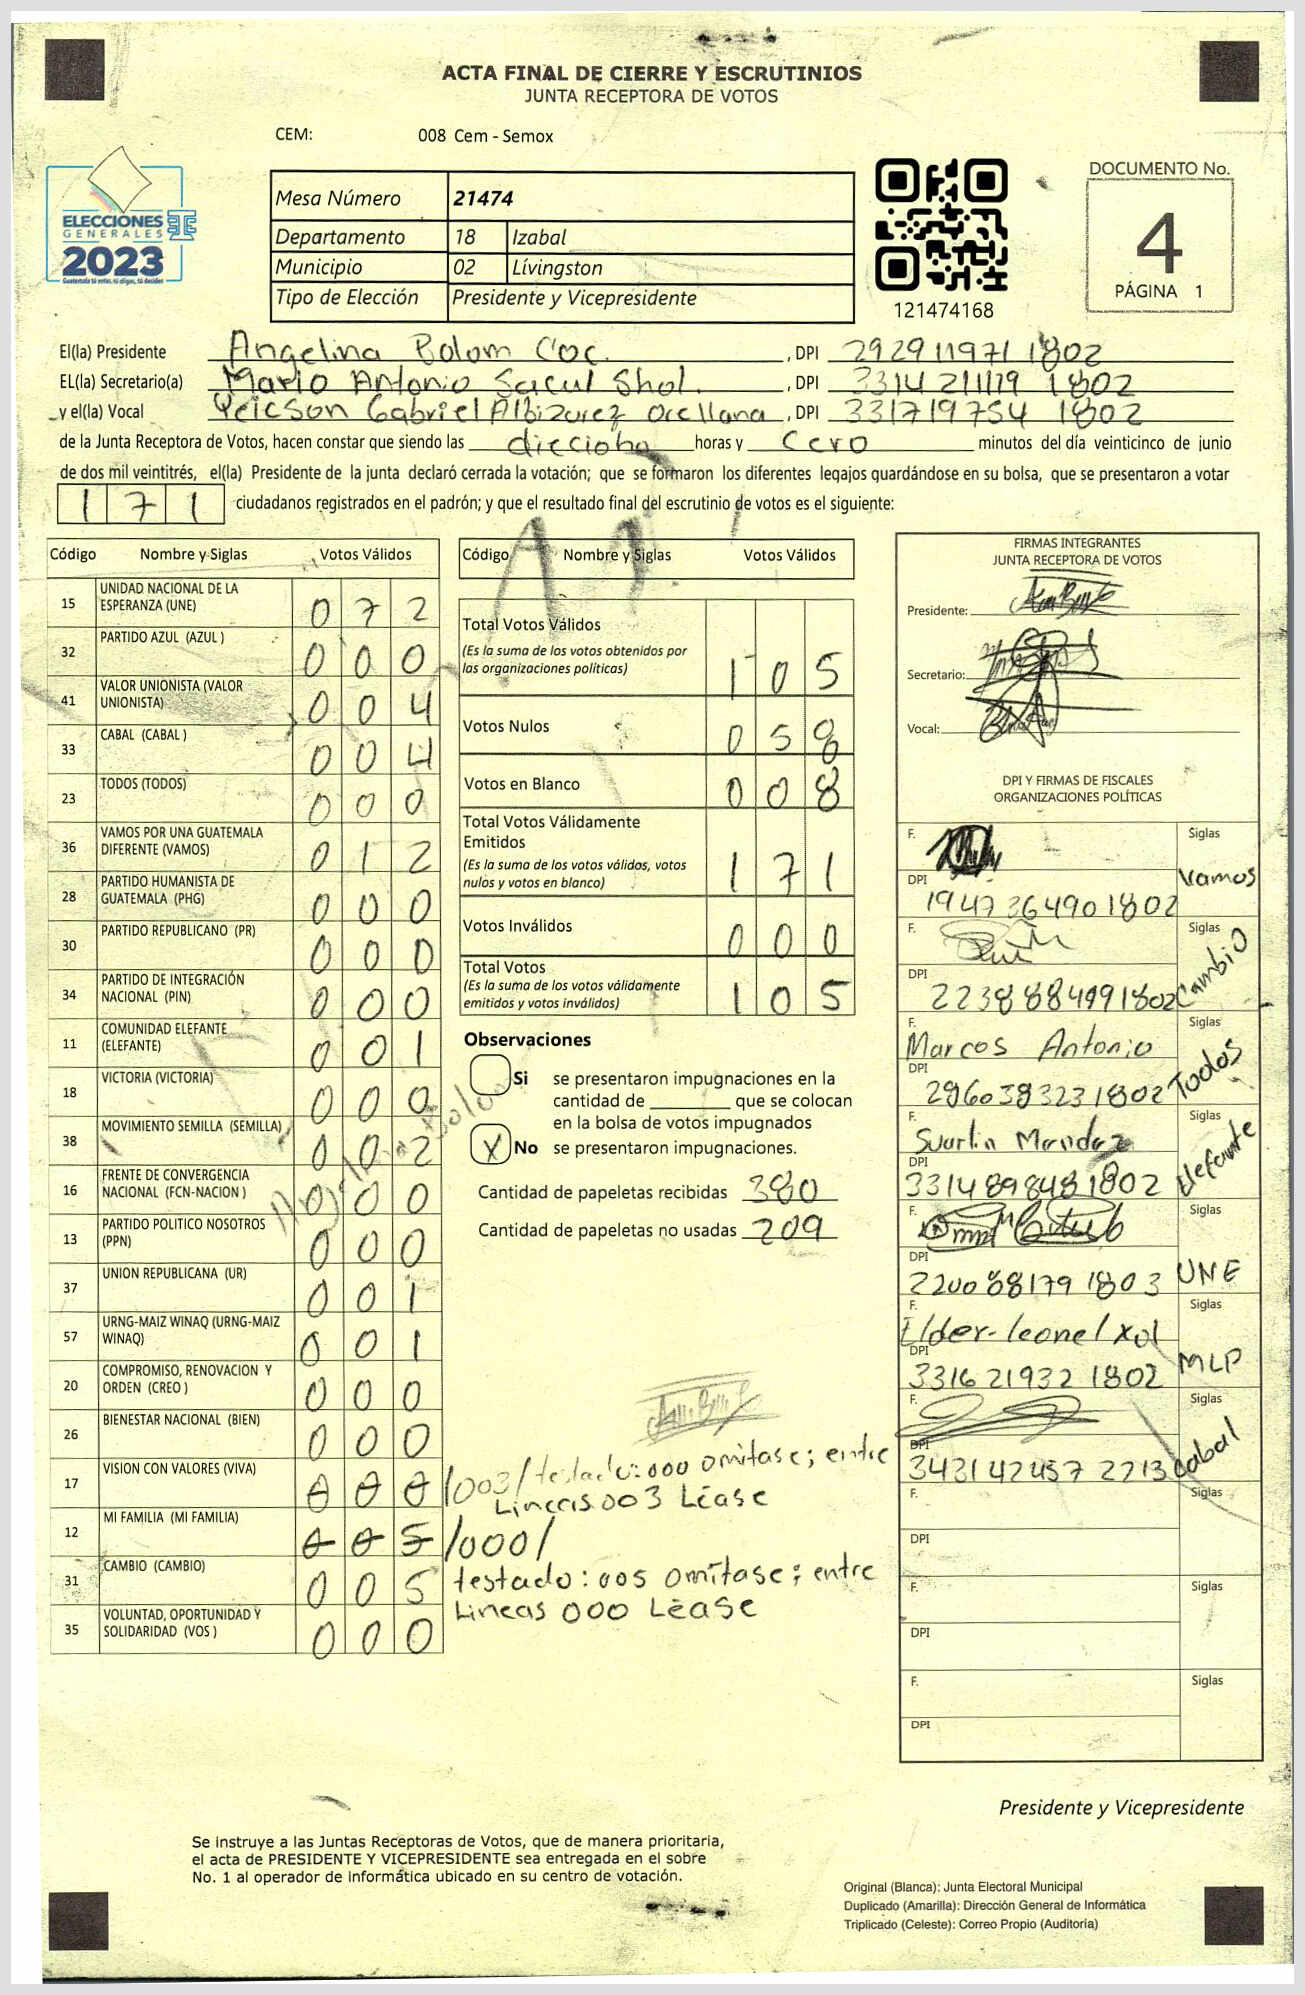 ACTA FINAL DE CIERRE Y ESCRUTINIOS
JUNTA RECEPTORA DE VOTOS
CEM: 008 Cem - Semox
DOCUMENTO No.
4
PÁGINA 1
ELECCIONES
GENERALES
2023
Guatemala tú eres, tú eliges, tú decides
Mesa Número 21474
Departamento 18 Izabal
Municipio 02 Lívingston
Tipo de Elección Presidente y Vicepresidente
121474168
El(la) Presidente Angelina Bolom Coc. , DPI 292911971 1802
EL(la) Secretario(a) Mario Antonio Sacul Shol. , DPI 3314 21119 1802
y el(la) Vocal Yeicson Gabriel Albizurez Orellana , DPI 331719754 1802
de la Junta Receptora de Votos, hacen constar que siendo las dieciocho horas y cero minutos del día veinticinco de junio
de dos mil veintitrés, el(la) Presidente de la junta declaró cerrada la votación; que se formaron los diferentes legajos guardándose en su bolsa, que se presentaron a votar
171 ciudadanos registrados en el padrón; y que el resultado final del escrutinio de votos es el siguiente:
Código Nombre y Siglas Votos Válidos
15 UNIDAD NACIONAL DE LA ESPERANZA (UNE) 0 7 2
32 PARTIDO AZUL (AZUL ) 0 0 0
41 VALOR UNIONISTA (VALOR UNIONISTA) 0 0 4
33 CABAL (CABAL ) 0 0 4
23 TODOS (TODOS) 0 0 0
36 VAMOS POR UNA GUATEMALA DIFERENTE (VAMOS) 0 1 2
28 PARTIDO HUMANISTA DE GUATEMALA (PHG) 0 0 0
30 PARTIDO REPUBLICANO (PR) 0 0 0
34 PARTIDO DE INTEGRACIÓN NACIONAL (PIN) 0 0 0
11 COMUNIDAD ELEFANTE (ELEFANTE) 0 0 1
18 VICTORIA (VICTORIA) 0 0 0
38 MOVIMIENTO SEMILLA (SEMILLA) 0 0 2
16 FRENTE DE CONVERGENCIA NACIONAL (FCN-NACION ) 0 0 0
13 PARTIDO POLITICO NOSOTROS (PPN) 0 0 0
37 UNION REPUBLICANA (UR) 0 0 1
57 URNG-MAIZ WINAQ (URNG-MAIZ WINAQ) 0 0 1
20 COMPROMISO, RENOVACION Y ORDEN (CREO ) 0 0 0
26 BIENESTAR NACIONAL (BIEN) 0 0 0
17 VISION CON VALORES (VIVA) 0 0 0 /003/ testado: 000 omitase; entre
Lineas 003 Léase
12 MI FAMILIA (MI FAMILIA) 0 0 5 /000/
31 CAMBIO (CAMBIO) 0 0 5 testado: 005 omítase; entre
Lineas 000 Léase
35 VOLUNTAD, OPORTUNIDAD Y SOLIDARIDAD (VOS ) 0 0 0
Código Nombre y Siglas Votos Válidos
Total Votos Válidos
(Es la suma de los votos obtenidos por
las organizaciones políticas) 1 0 5
Votos Nulos 0 5 8
Votos en Blanco 0 0 8
Total Votos Válidamente
Emitidos
(Es la suma de los votos válidos, votos
nulos y votos en blanco) 1 7 1
Votos Inválidos 0 0 0
Total Votos
(Es la suma de los votos válidamente
emitidos y votos inválidos) 1 0 5
Observaciones
Si se presentaron impugnaciones en la
cantidad de ________ que se colocan
en la bolsa de votos impugnados
X No se presentaron impugnaciones.
Cantidad de papeletas recibidas 380
Cantidad de papeletas no usadas 209
FIRMAS INTEGRANTES
JUNTA RECEPTORA DE VOTOS
Presidente:
Secretario:
Vocal:
DPI Y FIRMAS DE FISCALES
ORGANIZACIONES POLÍTICAS
F. Siglas
DPI 1947364901802 Vamos
F. Siglas
DPI 2238884991802 Cambio
F. Marcos Antonio Siglas
DPI 2960393231802 Todos
F. Suarlin Mendez Siglas
DPI 3314898481802 Elefante
F. Siglas
DPI 2200881791803 UNE
F. Elder-leonel xol Siglas
DPI 3316219321802 MLP
F. Siglas
DPI 3431424572213 cabal
F. Siglas
DPI
F. Siglas
DPI
F. Siglas
DPI
Presidente y Vicepresidente
Se instruye a las Juntas Receptoras de Votos, que de manera prioritaria,
el acta de PRESIDENTE Y VICEPRESIDENTE sea entregada en el sobre
No. 1 al operador de informática ubicado en su centro de votación.
Original (Blanca): Junta Electoral Municipal
Duplicado (Amarilla): Dirección General de Informática
Triplicado (Celeste): Correo Propio (Auditoría)